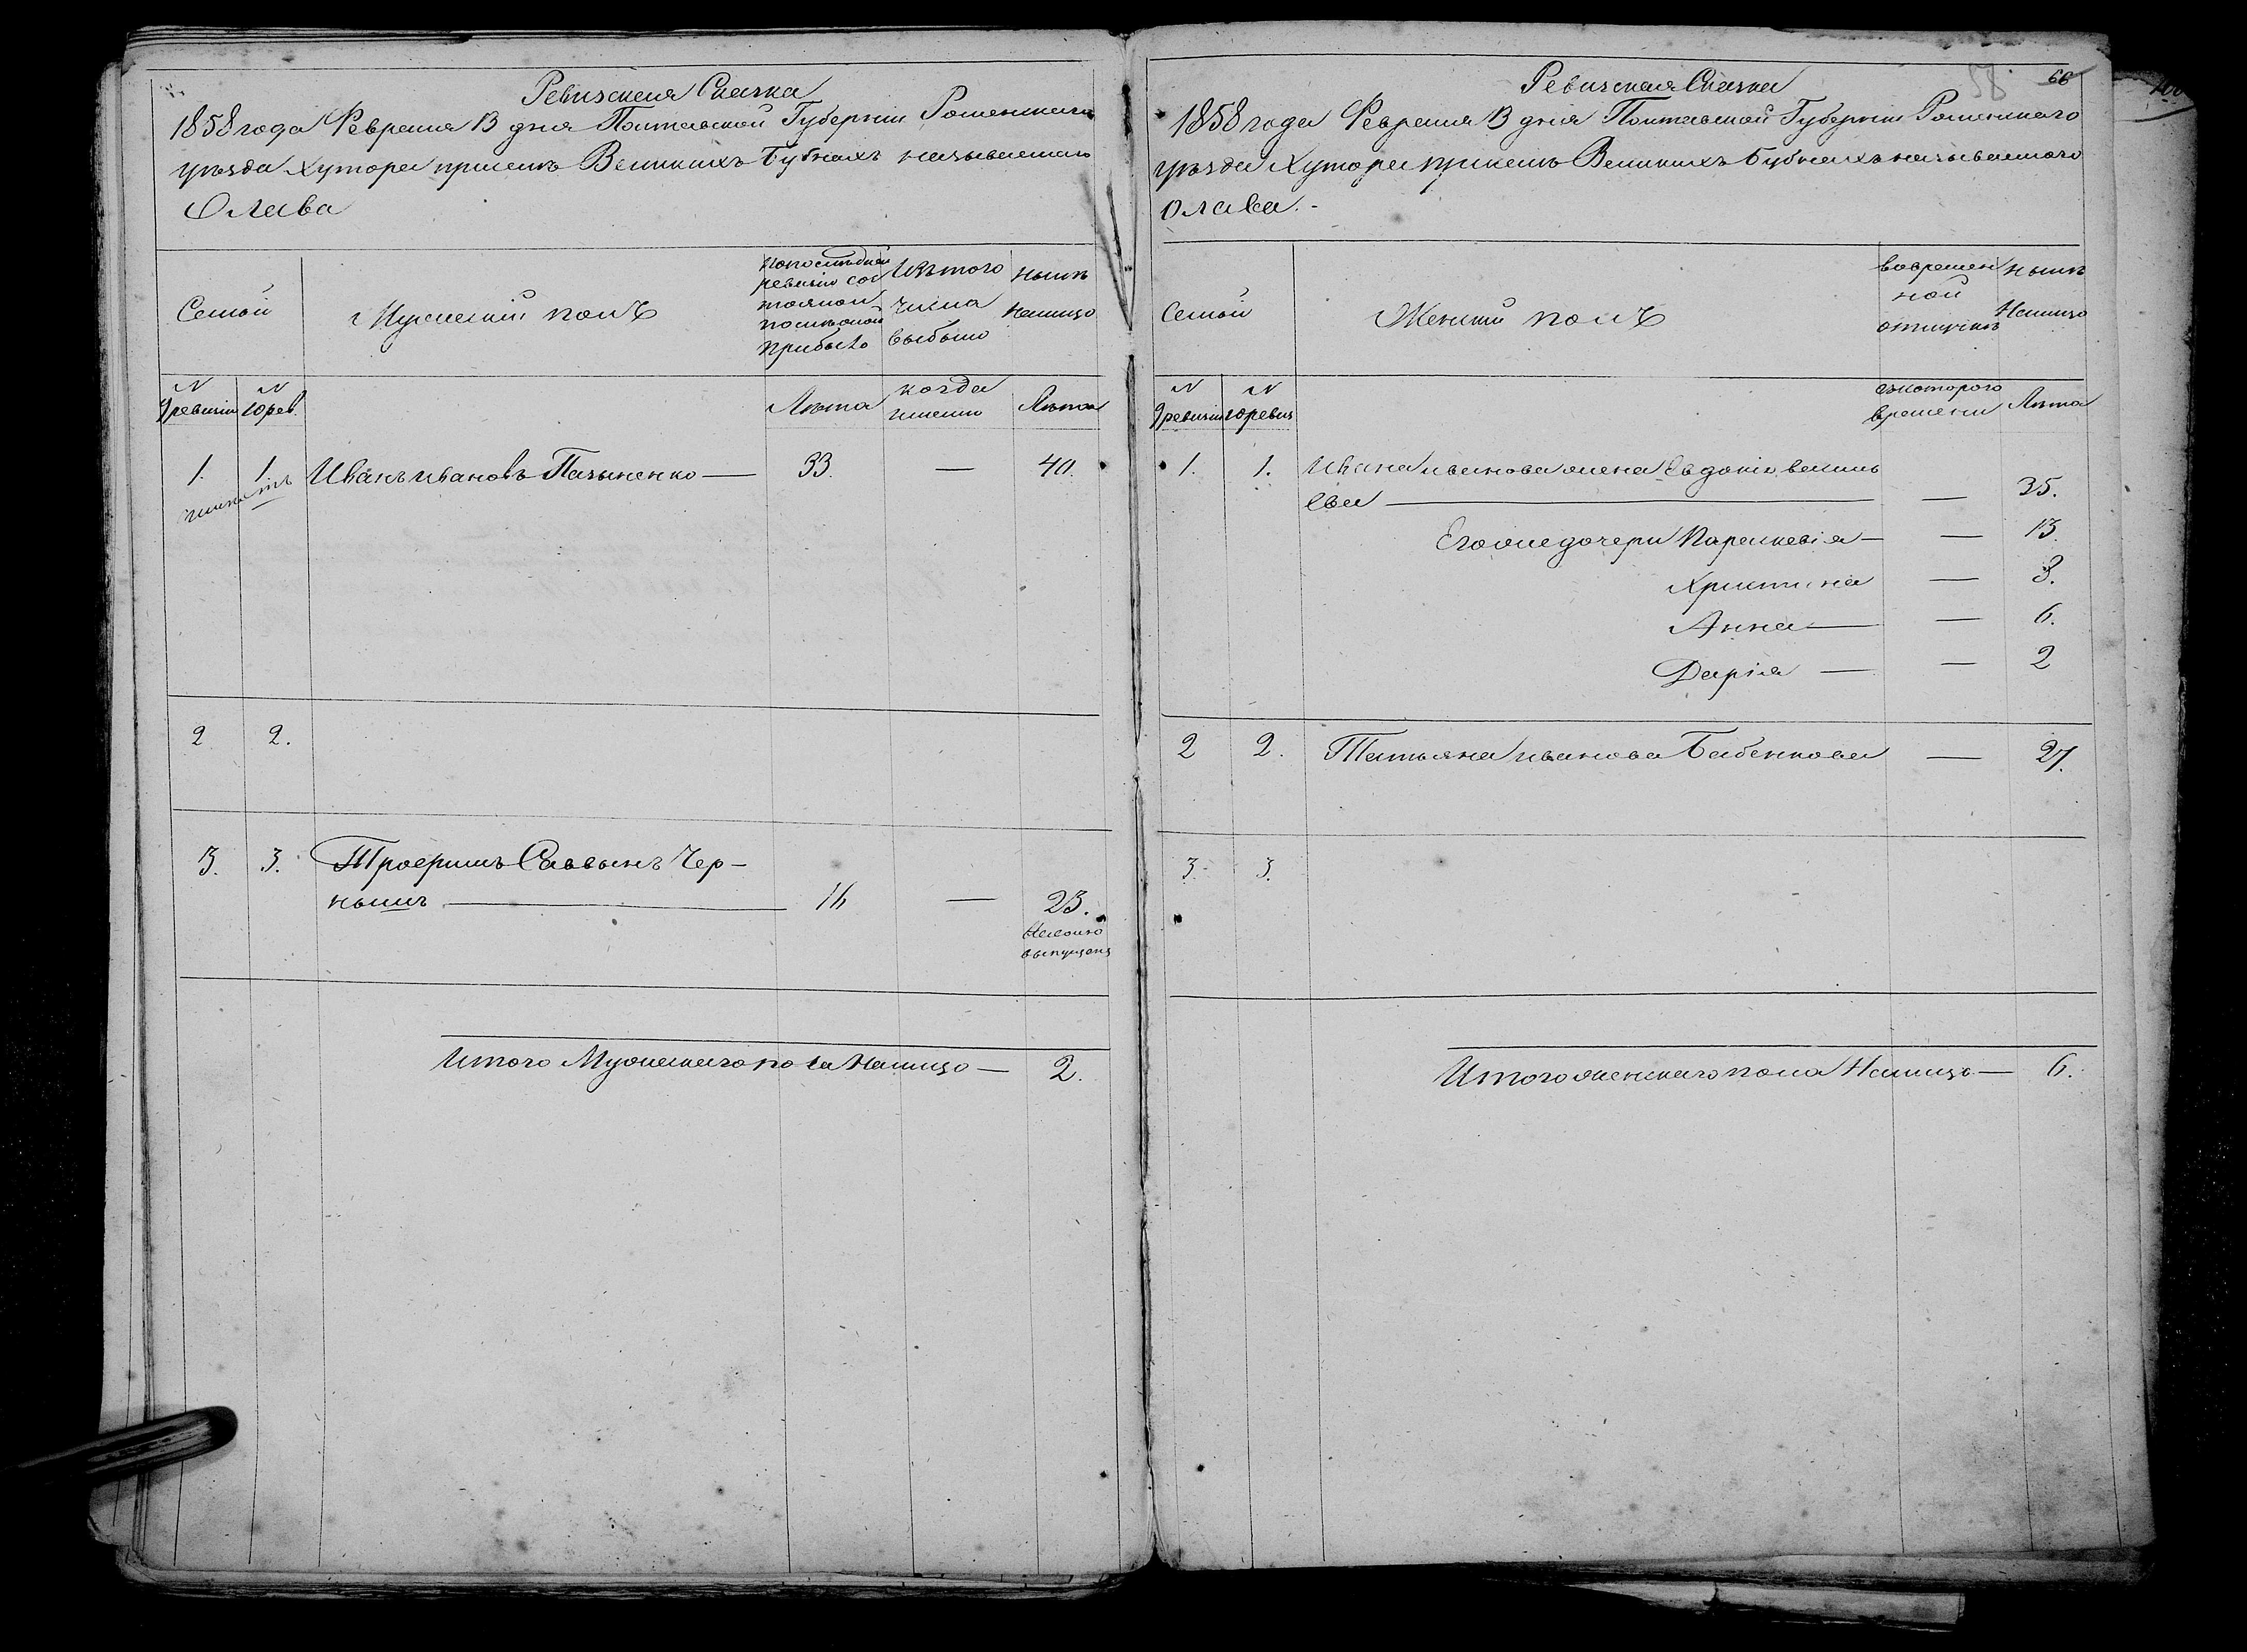 Ревизская Сказка
1858 года Февраля 13 дня Полтавской Губернии Роменскаго
уезда Хутора при селе Великихъ Бубнахъ называемаго
Олава
Семьи
Мужескій полъ
По последней ревизіи состояло и после оной прибыло
Изъ того числа выбыло
ныне на лицо
№ 9 ревизіи
№ 10 рев.
Лета
когда именно
Лета
1. 1. Иванъ Ивановъ — 33. — 40.
2 2.
3. 3. Саввинъ Чер-
нышъ — 16 — 23.
выпущенъ
Итого Мужескаго пола На лицо — 2.
58 66
Ревизская Сказка
1858 года Февраля 13 дня Полтавской Губерніи Роменскаго
уезда Хутора при селе Великихъ Бубнахъ называемого
Олава. -
Семьи
Женскій полъ
во временной отлучке
ныне На лицо
№ 9 ревизіи
№ 10 ревиз
съ которого времени
Лета
1. 1. Ивана Иванова жена Евдокія Василь
ева — — 35.
Его же дочери Параскевія — — 13.
Христина — 8.
Анна — — 6.
Дарія — — 2
2 2. Татьяна Иванова Бабенкова — 27.
3. 3.
Итого женскаго пола На лицо — 6.